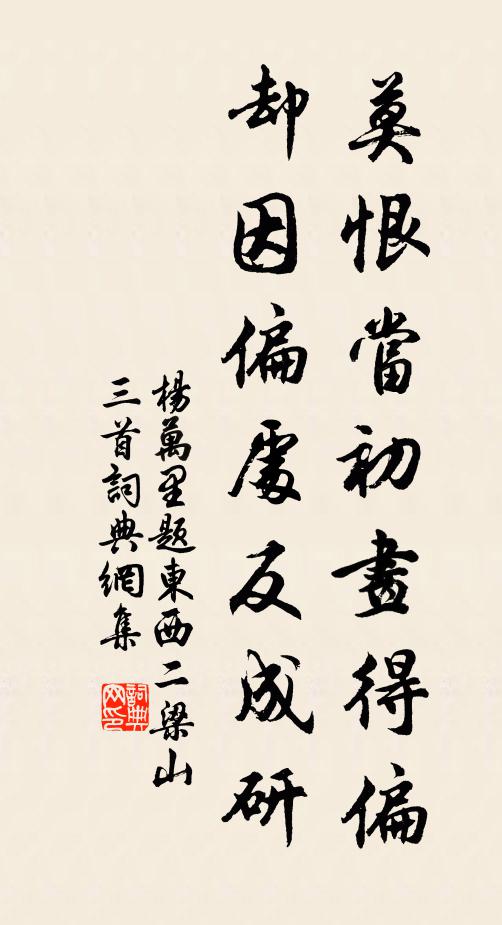 莫恨當初畫得偏
却因偏處反成研
楊萬里題東西二梁山
三首詞典網集
詞典網印